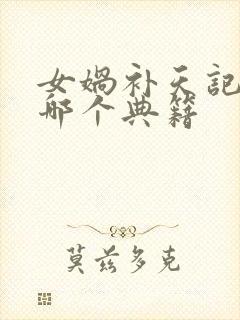 女娲补天记
哪个典籍
莫兹多克